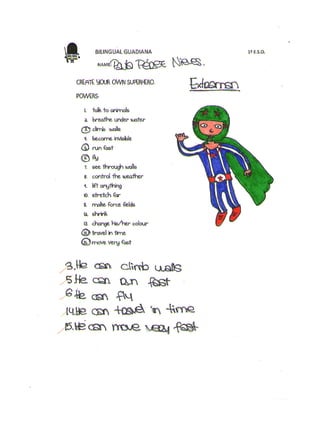 BILINGUAL GUADIANA 1º E.S.O.
NAME: Paula Pérez Nieves.
CREATE YOUR OWN SUPERHERO. Extraman
POWERS
1. talk to animals
2. breathe under water
3. climb walls
4. become invisible
5. run fast
6. fly
7. see through walls
8. control the weather
9. lift anything
10. stretch far
11. make force fields
12. shrink
13. change his/her colour
14. travel in time
15. move very fast
3. He can climb walls
5. He can run fast
6. He can fly
14. He can travel in time
15. He can move very fast